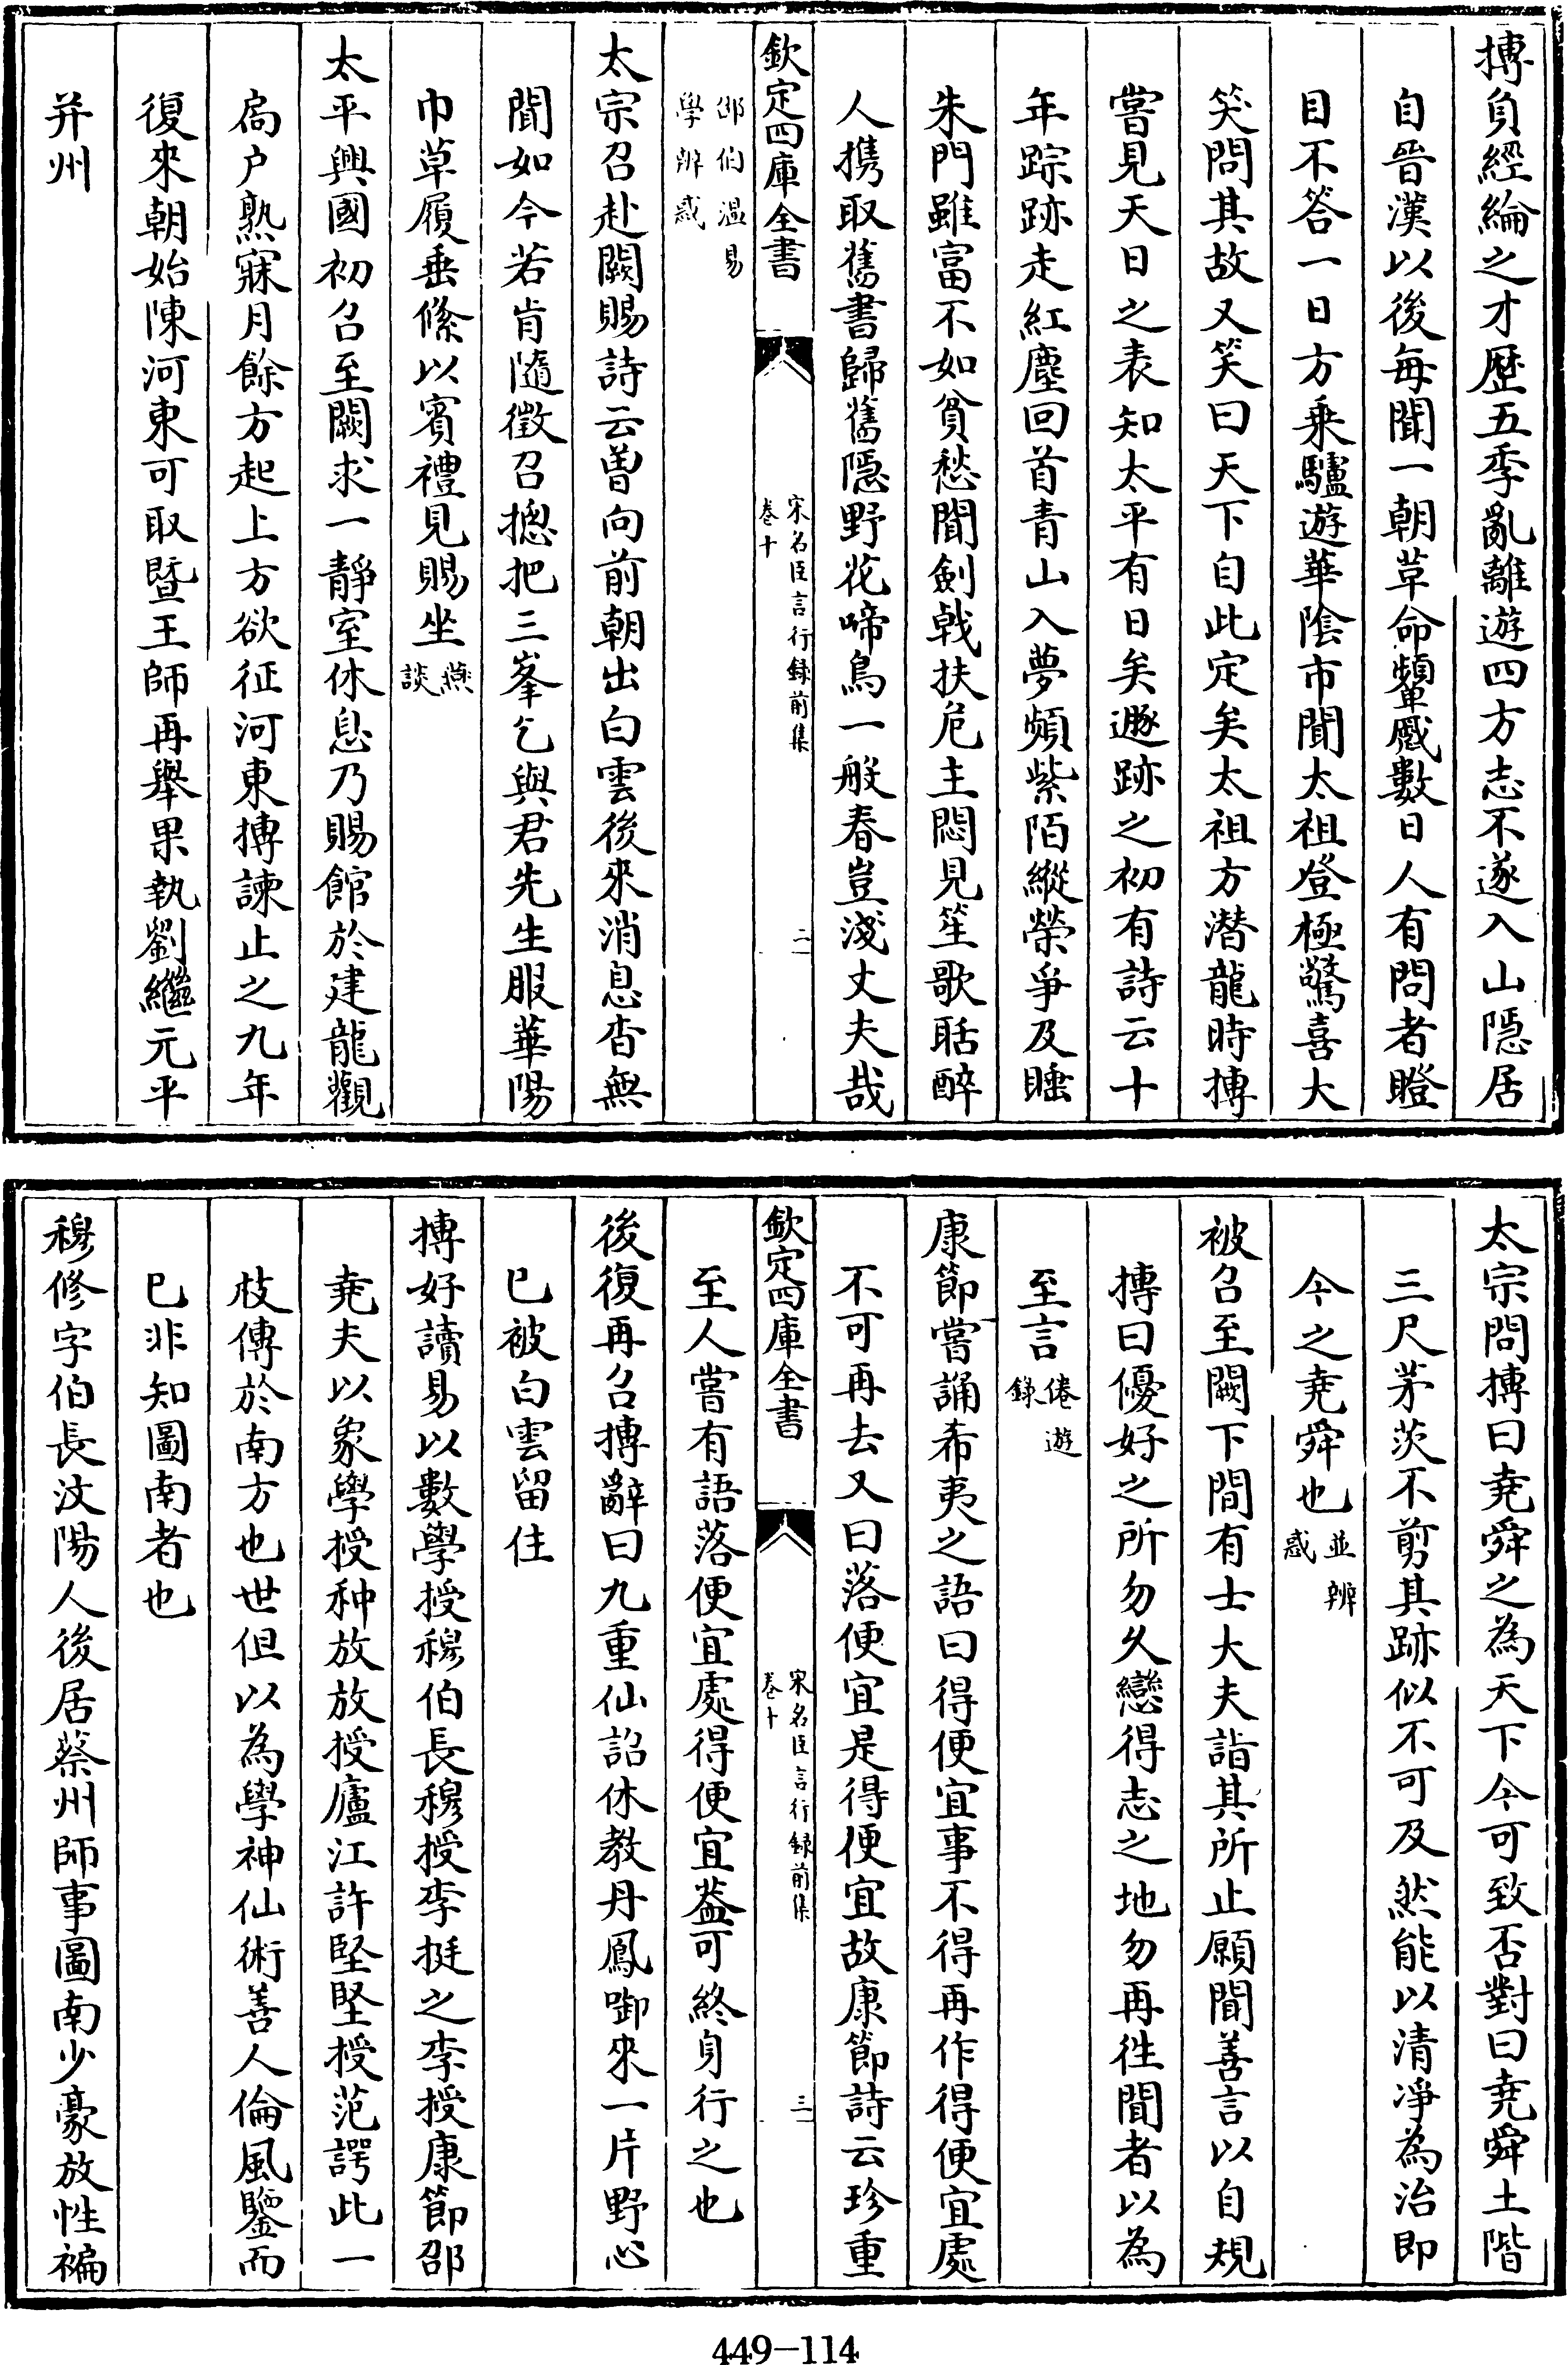 摶負經綸之才歴五季亂離遊四方志不遂入山隱居
自晉漢以後每聞一朝革命顰蹙數日人有問者瞪
目不答一日方乗驢遊華陰市聞太祖登極驚喜大
笑問其故又笑曰天下自此定矣太祖方潜龍時摶
嘗見天日之表知太平有日矣遯跡之初有詩云十
年踪跡走紅塵回首青山入夢頻紫陌縱榮爭及睡
朱門雖富不如貧愁聞劍㦸扶危主悶見笙歌聒醉
人携取舊書歸舊隱野花啼鳥一般春豈淺丈夫哉
欽定四庫全書
宋名臣言行録前集
卷十
二
邵伯温易
學辨惑
太宗召赴闕賜詩云曽向前朝出白雲後來消息杳無
聞如今若肯隨徵召揔把三峯乞與君先生服華陽
巾草履垂絛以賓禮見賜坐燕
談
太平興國初召至闕求一靜室休息乃賜館於建龍觀
扃户熟寐月餘方起上方欲征河東摶諫止之九年
復來朝始陳河東可取暨王師再舉果執劉繼元平
并州
太宗問摶曰堯舜之為天下今可致否對曰堯舜土階
三尺茅茨不剪其跡似不可及然能以清淨為治即
今之堯舜也並辨
惑
被召至闕下間有士大夫詣其所止願聞善言以自規
摶曰優好之所勿久戀得志之地勿再徃聞者以為
至言倦遊
錄
康節嘗誦希夷之語曰得便宜事不得再作得便宜處
不可再去又曰落便宜是得便宜故康節詩云珍重
欽定四庫全書
宋名臣言行録前集
卷十
三
至人嘗有語落便宜處得便宜葢可終身行之也
後復再召摶辭曰九重仙詔休教丹鳳啣來一片野心
已被白雲留住
摶好讀易以數學授穆伯長穆授李挺之李授康節邵
堯夫以象學授种放放授廬江許堅堅授范諤此一
枝傳於南方也世但以為學神仙術善人倫風鑒而
已非知圖南者也
穆修字伯長汶陽人後居蔡州師事圖南少豪放性褊
449-114